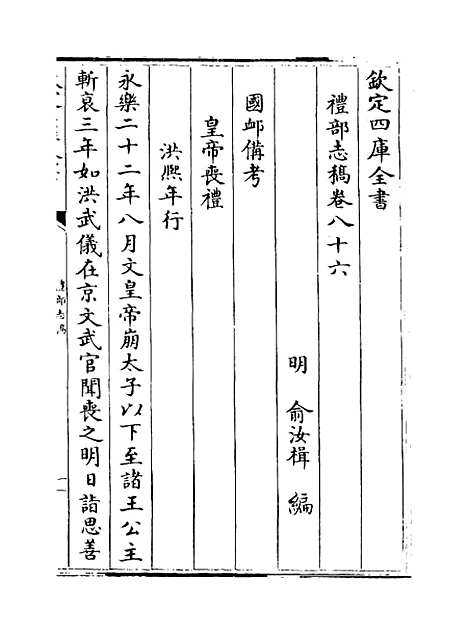 欽定四庫全書
禮部志稿卷八十六
明 俞汝楫 編
國邮備考
皇帝喪禮
洪熙年行
永樂二十二年八月文皇帝崩太子以下至諸王公主
斬哀三年如洪武儀在京文武官聞喪之明日詣思善
禮部志稿